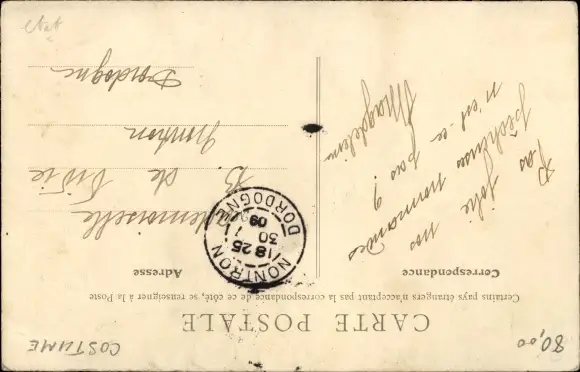 COSTUME
80,00
CARTE POSTALE
Certains pays étrangers n'acceptant pas la correspondance de ce côté, se renseigner à la Poste
Correspondance
Adresse
Pas jolie nos
pêcheuses normandes
n'est-ce pas ?
Magdelein
NONTRON
18 25
30 7
09
DORDOGNE
Mademoiselle
B. de
Nontron
Dordogne